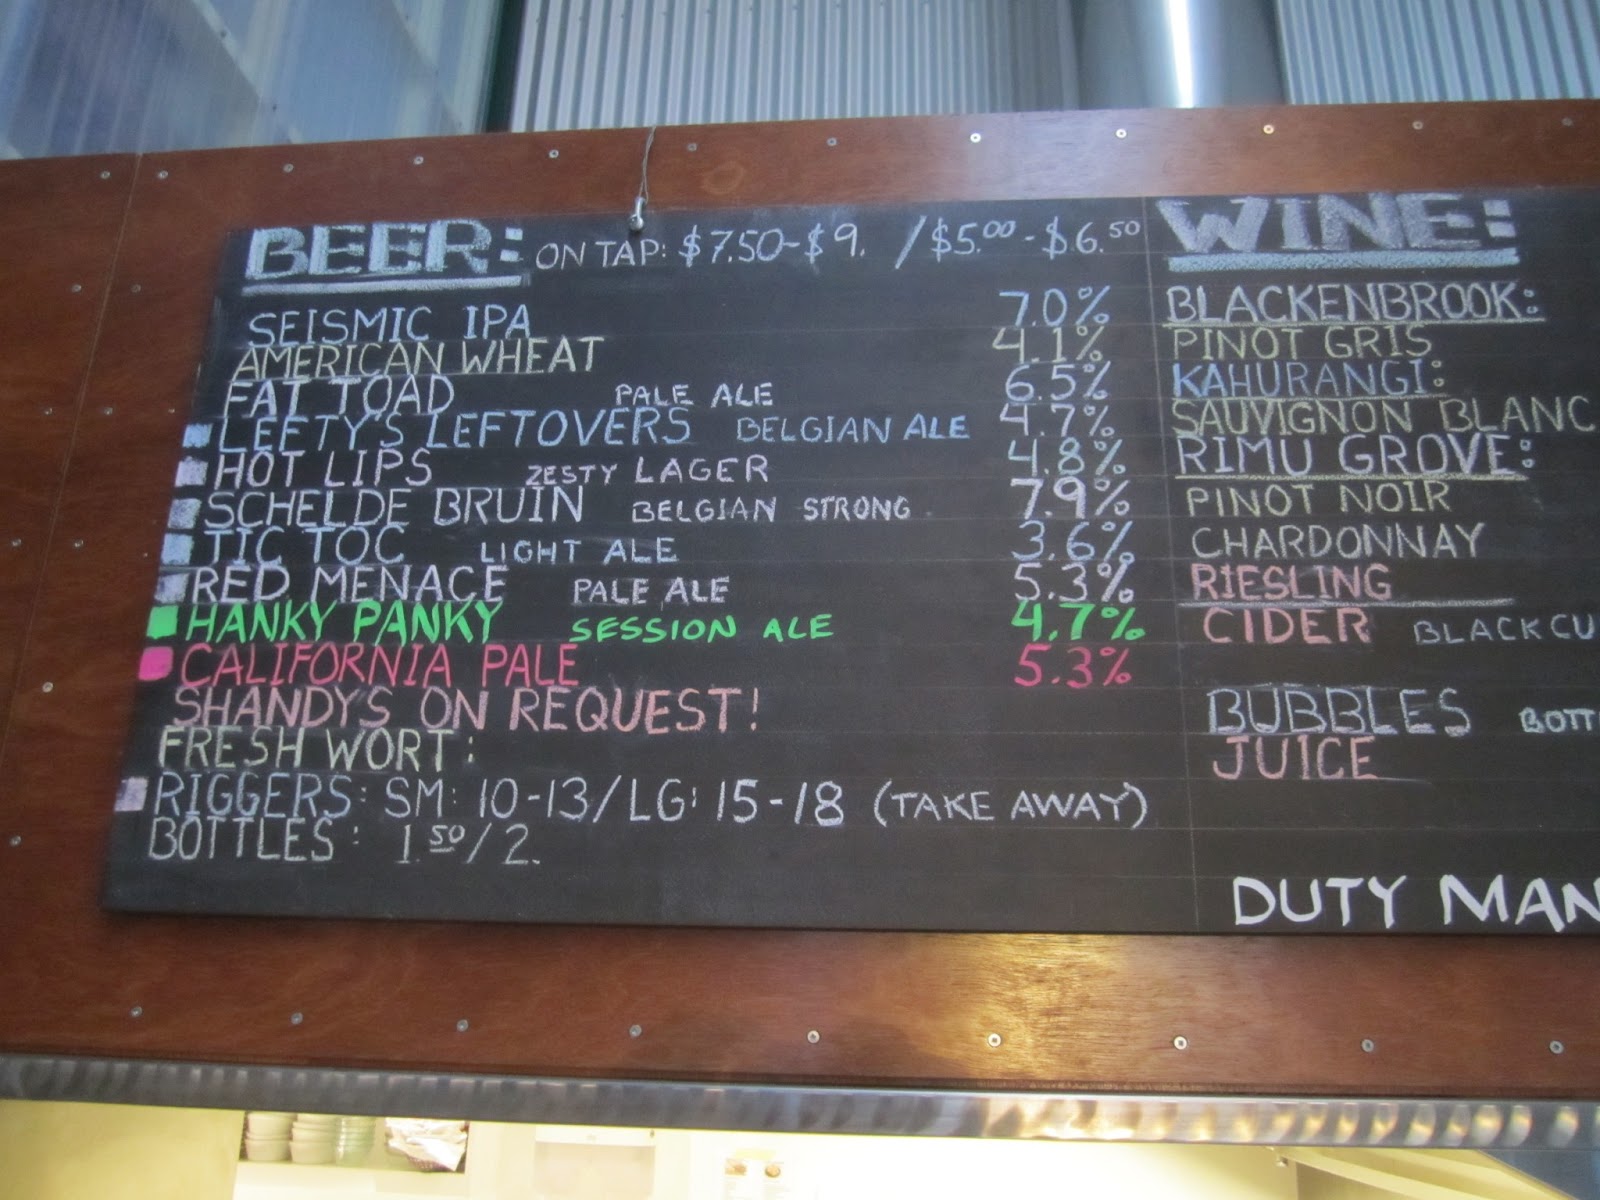 BEER: ON TAP: $7.50-$9. / $5.00 - $6.50
SEISMIC IPA 7.0%
AMERICAN WHEAT 4.1%
FAT TOAD PALE ALE 6.5%
LEFTY'S LEFTOVERS BELGIAN ALE 4.7%
HOT LIPS ZESTY LAGER 4.8%
SCHELDE BRUIN BELGIAN STRONG 7.9%
TIC TOC LIGHT ALE 3.6%
RED MENACE PALE ALE 5.3%
HANKY PANKY SESSION ALE 4.7%
CALIFORNIA PALE 5.3%
SHANDYS ON REQUEST!
FRESH WORT:
RIGGERS: SM: 10-13/LG: 15-18 (TAKE AWAY)
BOTTLES: 1.50/2.
WINE:
BLACKENBROOK:
PINOT GRIS
KAHURANGI:
SAUVIGNON BLANC
RIMU GROVE:
PINOT NOIR
CHARDONNAY
RIESLING
CIDER BLACKCU
BUBBLES BOTT
JUICE
DUTY MAN